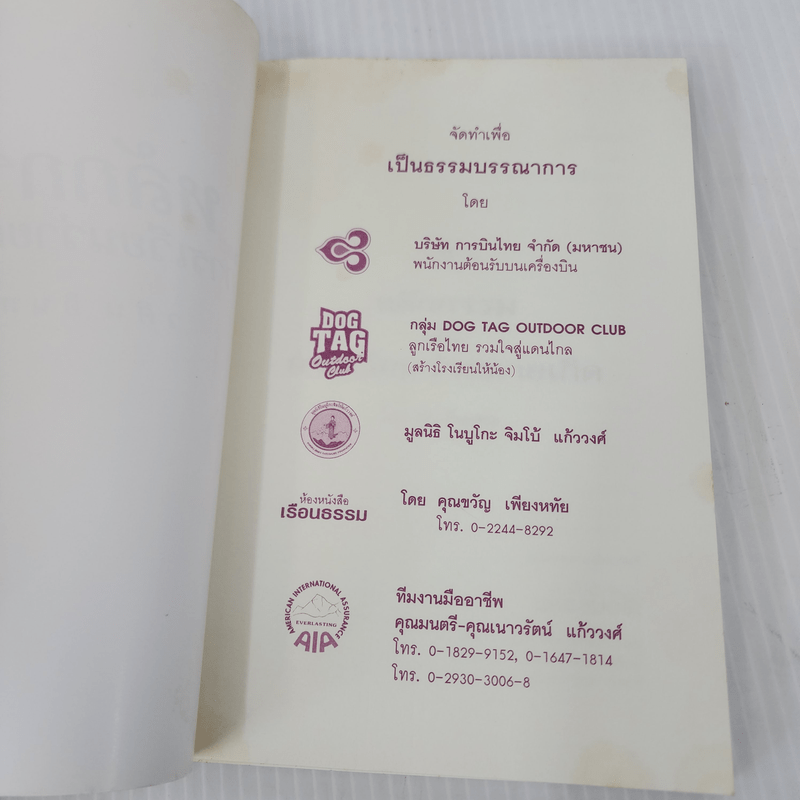 จัดทำเพื่อ
เป็นธรรมบรรณาการ
โดย
บริษัท การบินไทย จำกัด (มหาชน)
พนักงานต้อนรับบนเครื่องบิน
DOG
TAG
Outdoor
Club
กลุ่ม DOG TAG OUTDOOR CLUB
ลูกเรือไทย รวมใจสู่แดนไกล
(สร้างโรงเรียนให้น้อง)
มูลนิธิ โนบูโกะ จิมโบ้ แก้ววงศ์
ห้องหนังสือ
เรือนธรรม
โดย คุณขวัญ เพียงหทัย
โทร. 0-2244-8292
AMERICAN INTERNATIONAL ASSURANCE
EVERLASTING
AIA
ทีมงานมืออาชีพ
คุณมนตรี-คุณเนาวรัตน์ แก้ววงศ์
โทร. 0-1829-9152, 0-1647-1814
โทร. 0-2930-3006-8